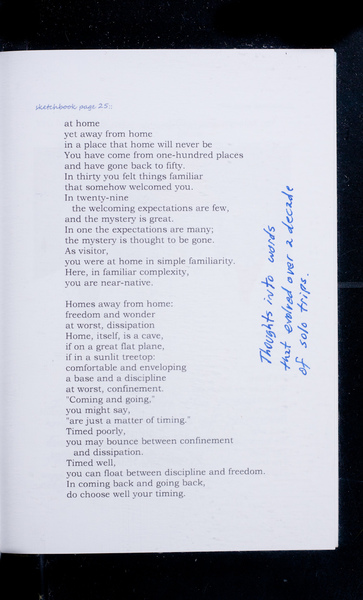 sketchbook page 25::
at home
yet away from home
in a place that home will never be
You have come from one-hundred places
and have gone back to fifty.
In thirty you felt things familiar
that somehow welcomed you.
In twenty-nine
the welcoming expectations are few,
and the mystery is great.
In one the expectations are many;
the mystery is thought to be gone.
As visitor,
you were at home in simple familiarity.
Here, in familiar complexity,
you are near-native.
Homes away from home:
freedom and wonder
at worst, dissipation
Home, itself, is a cave,
if on a great flat plane,
if in a sunlit treetop:
comfortable and enveloping
a base and a discipline
at worst, confinement.
"Coming and going,"
you might say,
"are just a matter of timing."
Timed poorly,
you may bounce between confinement
and dissipation.
Timed well,
you can float between discipline and freedom.
In coming back and going back,
do choose well your timing.
Thoughts into words
that evolved over a decade
of solo trips.